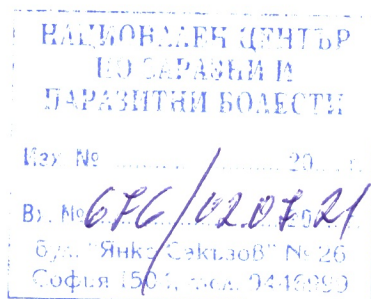 НАЦИОНАЛЕН ЦЕНТЪР
ПО ЗАРАЗНИ И
ПАРАЗИТНИ БОЛЕСТИ
Изх № ............ 20.....г.
Вх. № 676/02.07.21
бул. "Янко Сакъзов" № 26
София 1504, тел. 9446999